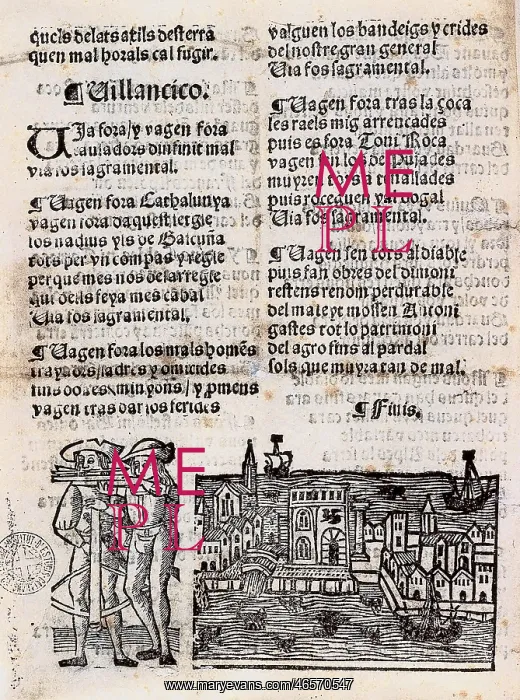 quels delats atils desterra
quen mal horals cal fugir.
¶ Uillancico.
UJa fora/y vagen fora
auladors dinfinit mal
via fos sagramental.
¶ Uagen fora Cathalunya
vagen fora daquest
los nadius yls de Gascuna
tots per vn compas y regle
perque mes nos desarregle
qui dells feya mes cabal
Uia fos sagramental.
¶ Uagen fora los mals homẽs
traydors/ladres y omicides
/y
vagen tras
valguen los bandeigs y crides
del nostre gran general
Uia fos sagramental.
¶ Uagen fora tras la çoca
les raels mig arrencades
puis es fora Toni Roca
vagen sen los de Pujades
muyren tots a tenallades
puis roceguen ya dogal
Uia fos sagramental.
¶ Uagen sen tots al diable
puis fan obres del dimoni
restens renom perdurable
del mateyt mossen Antoni
gastes tot lo patrimoni
del agro fins al pardal
sols que muyra tan de mal.
¶ Finis.
ME
PL
ME
PL
www.maryevans.com/46570547